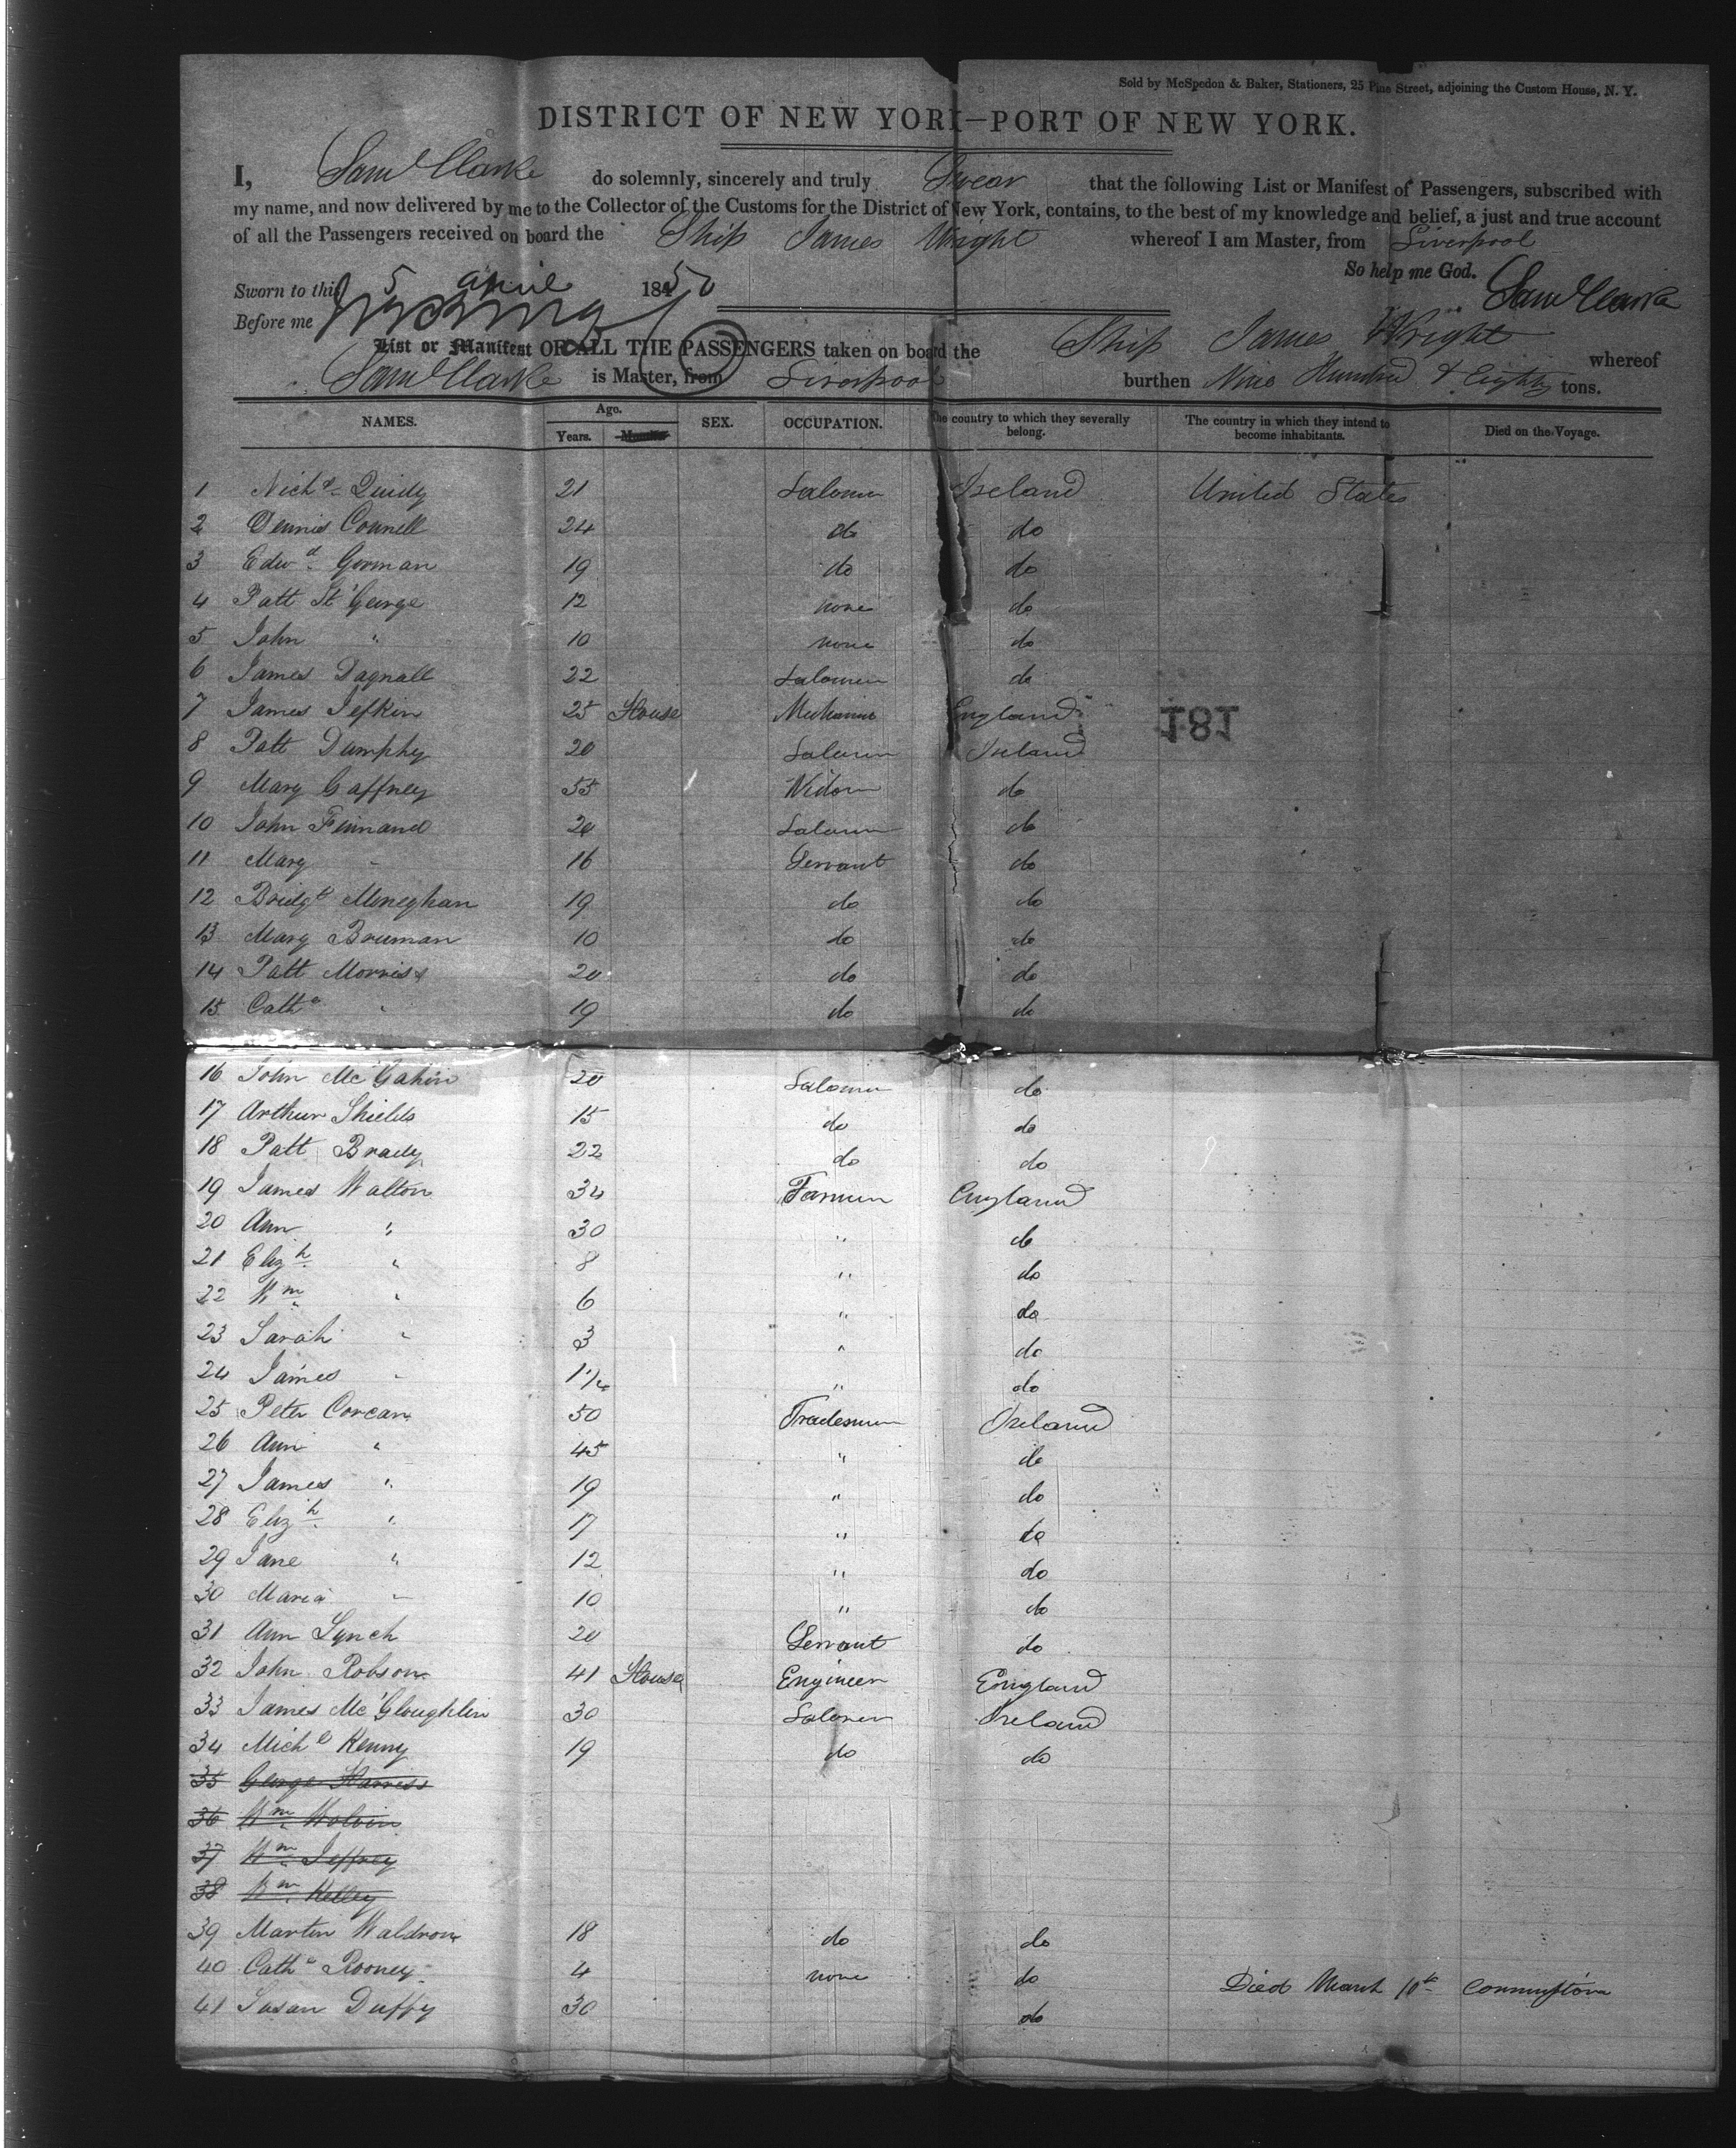 Sold by McSpedon & Baker, Stationers, 25 Pine Street, adjoining the Custom House, N. Y.
DISTRICT OF NEW YORK—PORT OF NEW YORK.
I, Saml Clarke do solemnly, sincerely and truly Swear that the following List or Manifest of Passengers, subscribed with
my name, and now delivered by me to the Collector of the Customs for the District of New York, contains, to the best of my knowledge and belief, a just and true account
of all the Passengers received on board the Ship James Wright whereof I am Master, from Liverpool
So help me God. Saml Clarke
Sworn to this 5 april 1850
Before me
List or Manifest OF ALL THE PASSENGERS taken on board the Ship James Wright whereof
Saml Clarke is Master, from Liverpool burthen Nine Hundred & Eighty tons.
NAMES. Age. Years. Months. SEX. OCCUPATION. The country to which they severally belong. The country in which they intend to become inhabitants. Died on the Voyage.
1 Nichs 21 Ireland United States
2 Dennis Connell 24 do do
3 Edwd Gorman 19 do do
4 Patt St George 12 none do
5 John " 10 none do
6 James Dagnall 22 do
7 James Jefkin 25 House Mechanic England
181
8 Patt Dumphy 20 Ireland
9 Mary Gaffney 55 Widow do
10 John 20 do
11 Mary " 16 Servant do
12 Bridgt Meneghan 19 do do
13 Mary Brennan 10 do do
14 Patt Morriss 20 do do
15 Cathe " 19 do do
16 John McGahin 20 do
17 Arthur Shields 15 do do
18 Patt Brady 22 do do
19 James Walton 34 Farmer England
20 Ann " 30 " do
21 Elizh " 8 " do
22 Wm " 6 " do
23 Sarah " 3 " do
24 James " " do
25 Peter Corcan 50 Tradesman Ireland
26 Ann " 45 " do
27 James " 19 " do
28 Elizh " 17 " do
29 Jane " 12 " do
30 Maria " 10 " do
31 Ann Lynch 20 Servant do
32 John Robson 41 House Engineer England
33 James McGloughlin 30 Ireland
34 Michl Kenny 19 do do
35 George Harress
36 Wm Wolvin
37 Wm Jeffrey
38 Wm Kelley
39 Martin Waldron 18 do do
40 Cathe Rooney 4 none do Died March 10th Consumption
41 Susan Duffy 30 do